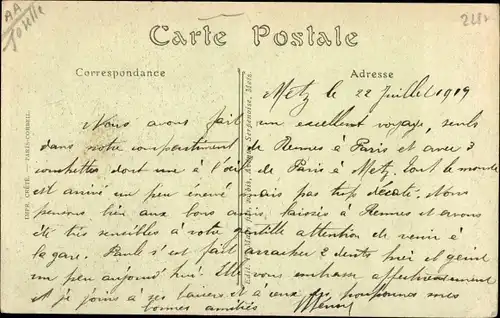 AA
Moselle
Carte Postale
Correspondance
Adresse
Metz le 22 Juillet 1919
Nous avons fait un excellent voyage, seuls
dans notre compartiment de Rennes à Paris et avec 2
couchettes dont une à l'œil de Paris à Metz. Tout le monde
est arrivé un peu énervé mais pas trop décati. Nous
pensons bien aux bons amis laissés à Rennes et avons
été très sensibles à votre gentille attention de venir à
la gare. Paule s'est fait arracher 2 dents hier et geint
un peu aujourd'hui. Elle vous embrasse affectueusement
et je joins à ses baisers et à ceux des mes
bonnes amitiés
IMPR. CRÉTÉ. PARIS-CORBEIL